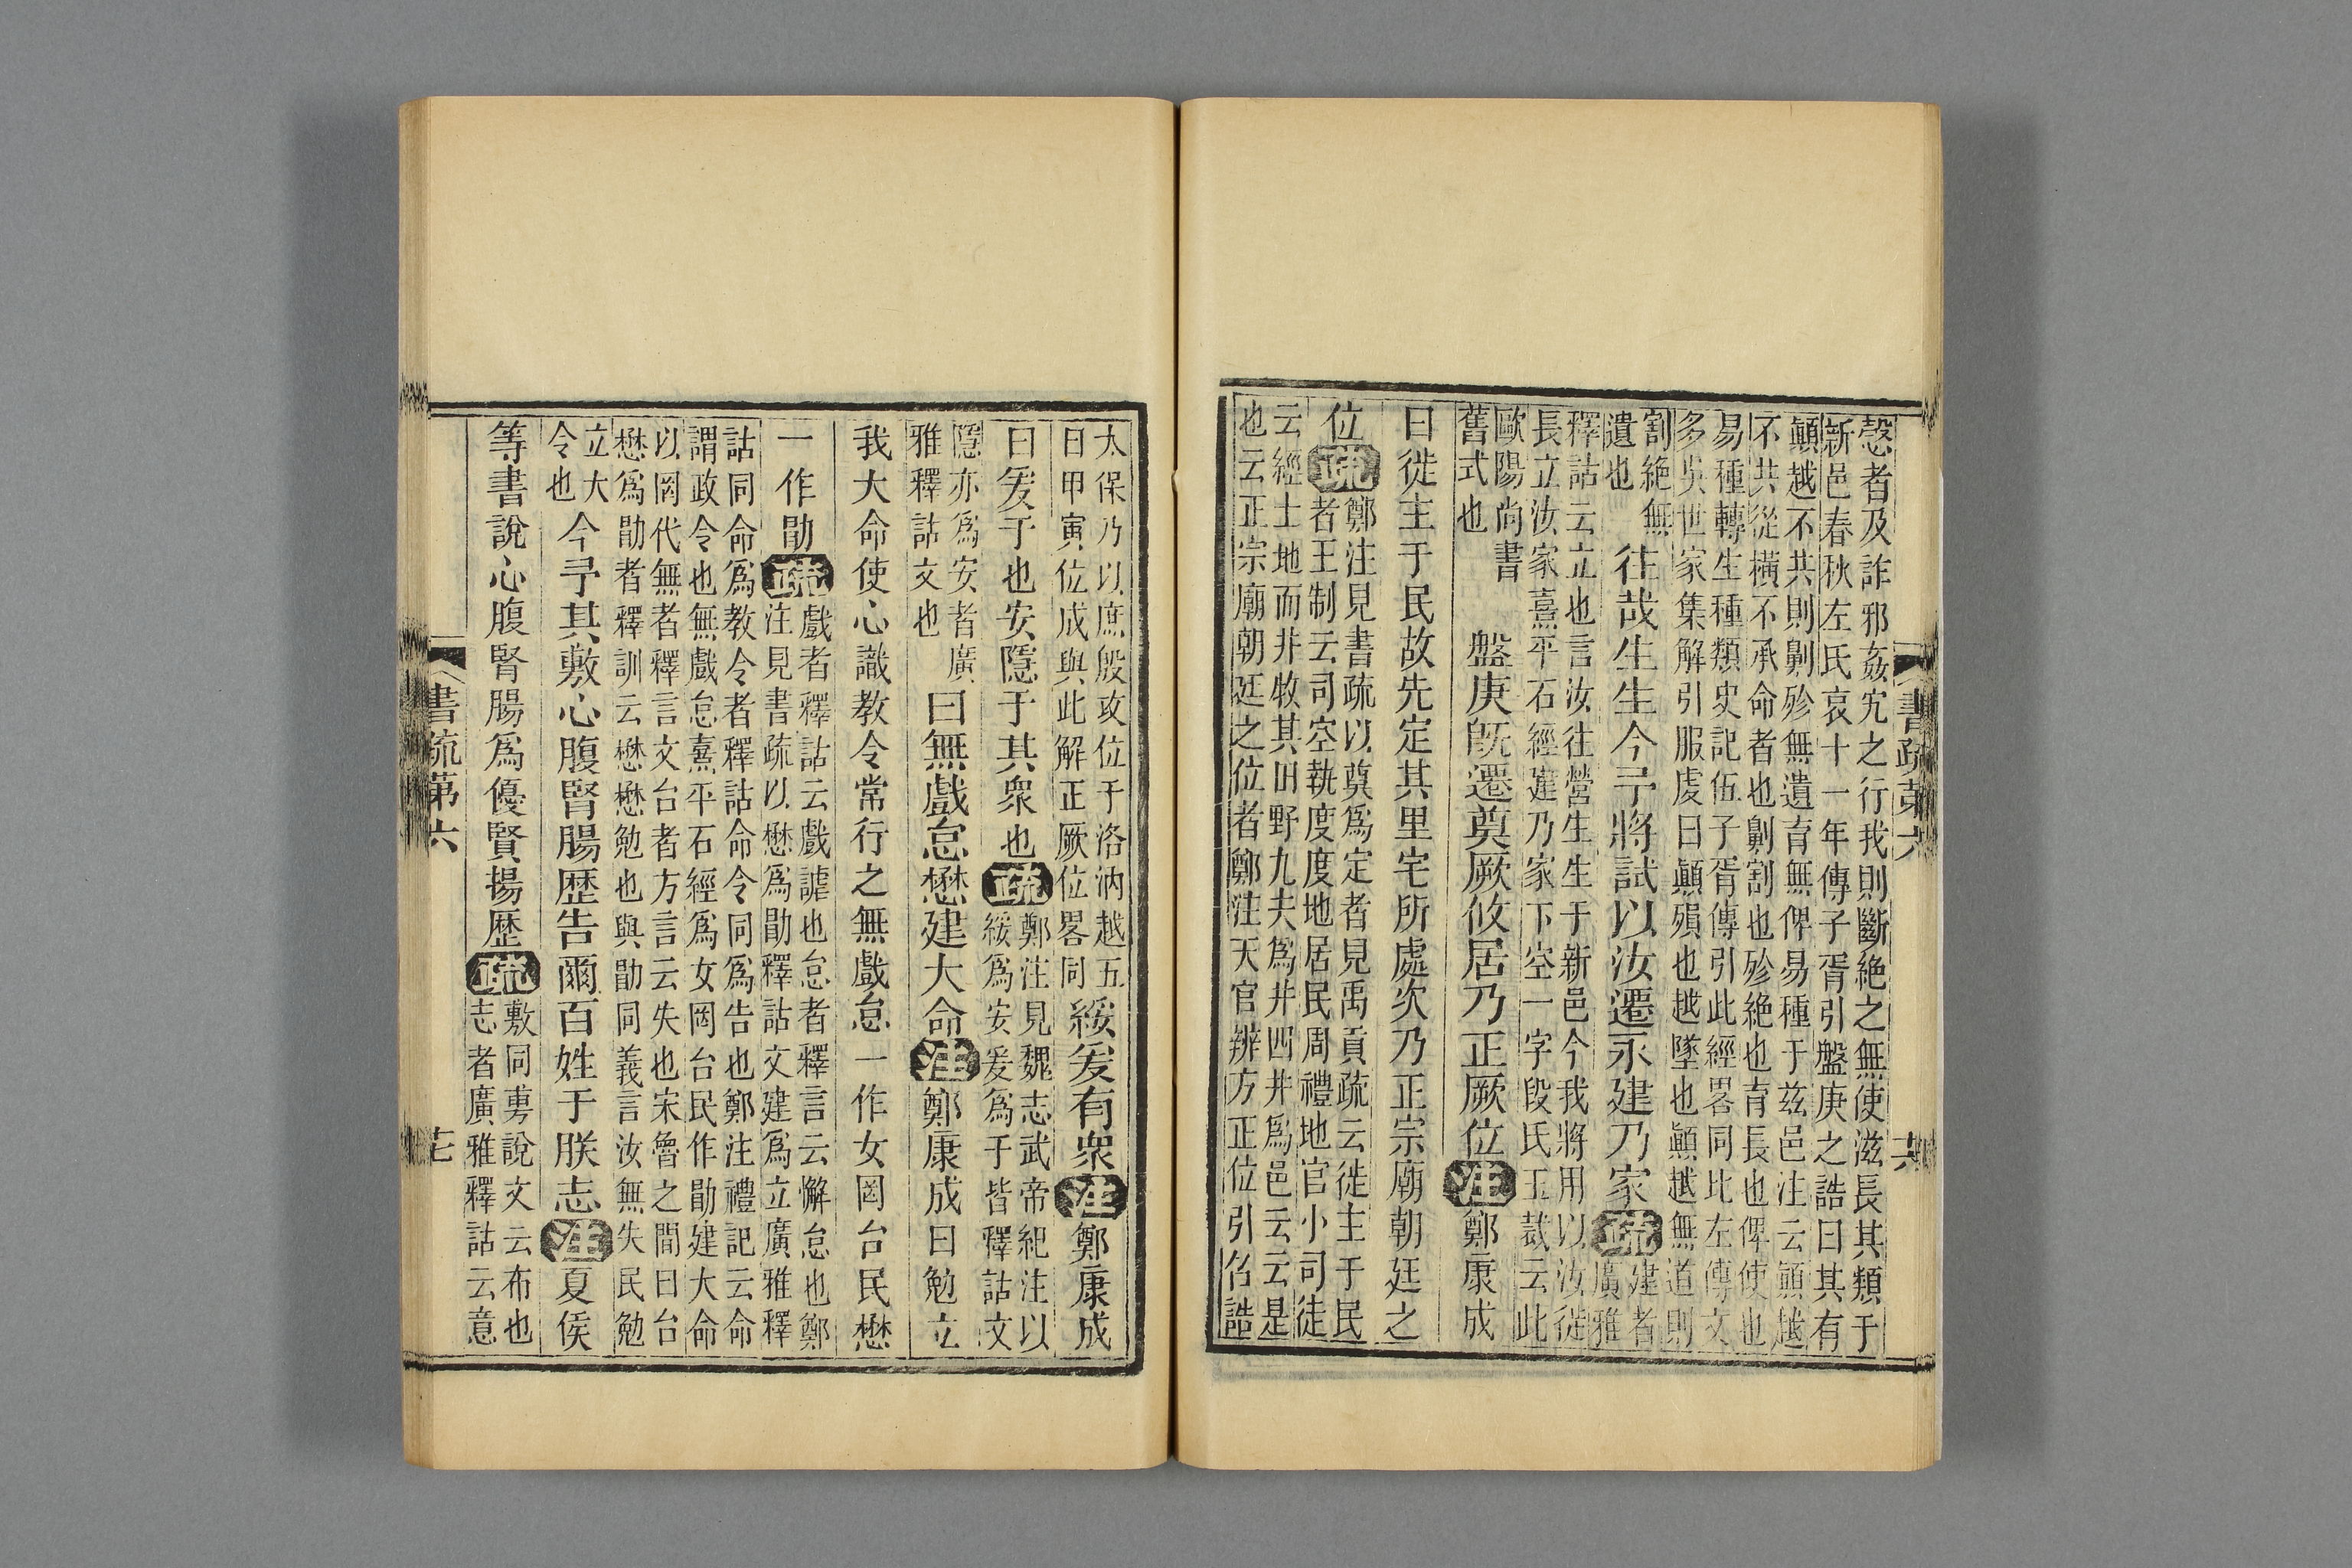 書疏第六
愨者及詐邪姦宄之行我則斷絕之無使滋長其類于
新邑春秋左氏哀十一年傳子胥引盤庚之誥曰其有
顚越不共則劓殄無遺育無俾易種于茲邑注云顚越
不共從橫不承命者也劓割也殄絕也育長也俾使也
易種轉生種類史記伍子胥傳引此經畧同比左傳文
多吳世家集解引服虔曰顚殞也越墜也顚越無道則
割絕無
遺也
往哉生生今予將試以汝遷永建乃家
疏
建者
廣雅
釋詁云立也言汝往營生生于新邑今我將用以汝徙
長立汝家熹平石經建乃家下空一字段氏玉裁云此
歐陽尚書
舊式也
盤庚旣遷奠厥攸居乃正厥位
注
鄭康成
曰徙主于民故先定其里宅所處次乃正宗廟朝廷之
位
疏
鄭注見書疏以奠爲定者見禹貢疏云徙主于民
者王制云司空執度度地居民周禮地官小司徒
云經土地而井牧其田野九夫爲井四井爲邑云云是
也云正宗廟朝廷之位者鄭注天官辨方正位引召誥
太保乃以庶殷攻位于洛汭越五
日甲寅位成與此解正厥位畧同
綏爰有衆
注
鄭康成
曰爰于也安隱于其衆也
疏
鄭注見魏志武帝紀注以
綏爲安爰爲于皆釋詁文
隱亦爲安者廣
雅釋詁文也
曰無戲怠懋建大命
注
鄭康成曰勉立
我大命使心識教令常行之無戲怠一作女罔台民懋
一作勖
疏
戲者釋詁云戲謔也怠者釋言云懈怠也鄭
注見書疏以懋爲勖釋詁文建爲立廣雅釋
詁同命爲教令者釋詁命令同爲告也鄭注禮記云命
謂政令也無戲怠熹平石經爲女罔台民作勖建大命
以罔代無者釋言文台者方言云失也宋魯之間曰台
懋爲勖者釋訓云懋懋勉也與勖同義言汝無失民勉
立大
令也
今予其敷心腹腎腸歷告爾百姓于朕志
注
夏侯
等書說心腹腎腸爲優賢揚歷
疏
敷同尃說文云布也
志者廣雅釋詁云意
書疏第六